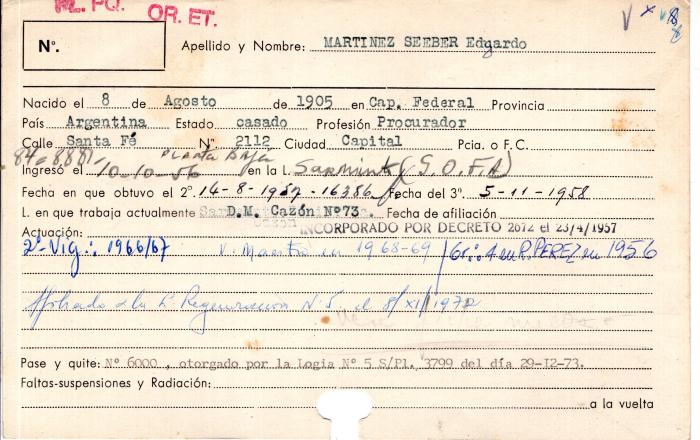 PL. PQ. OR. ET.
Nº.
Apellido y Nombre: MARTINEZ SEEBER Eduardo
Nacido el 8 de Agosto de 1905 en Cap. Federal Provincia
País Argentina Estado casado Profesión Procurador
Calle Santa Fé Nº 2112 Ciudad Capital Pcia. o F.C.
84-8881 PLANTA BAJA
Ingresó el 10-10-56 en la L. Sarmiento (G.O.F.A)
Fecha en que obtuvo el 2º. 14-8-1957-16386 Fecha del 3º. 5-11-1958
L. en que trabaja actualmente D.M. Cazón Nº73 Fecha de afiliación
Actuación: INCORPORADO POR DECRETO 2612 el 23/4/1957
2º Vig.: 1966/67 V. Maestro en 1968-69 Gr:. A en R. PEREZ en 1956
Afiliado a la L. Regeneracion N. 5. el 8/XI/1972
Pase y quite: Nº 6000, otorgado por la Logia Nº 5 S/Pl. 3799 del día 29-12-73.
Faltas-suspensiones y Radiación:
a la vuelta